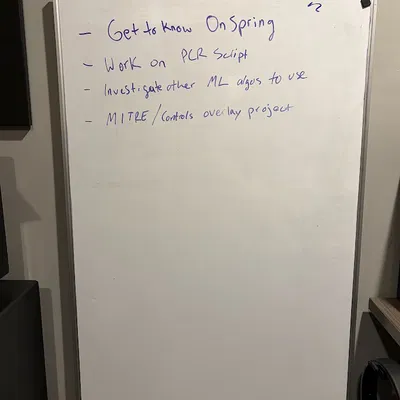 - Get to know OnSpring
- Work on PCR Script
- Investigate other ML algos to use
- MITRE/Controls overlay project